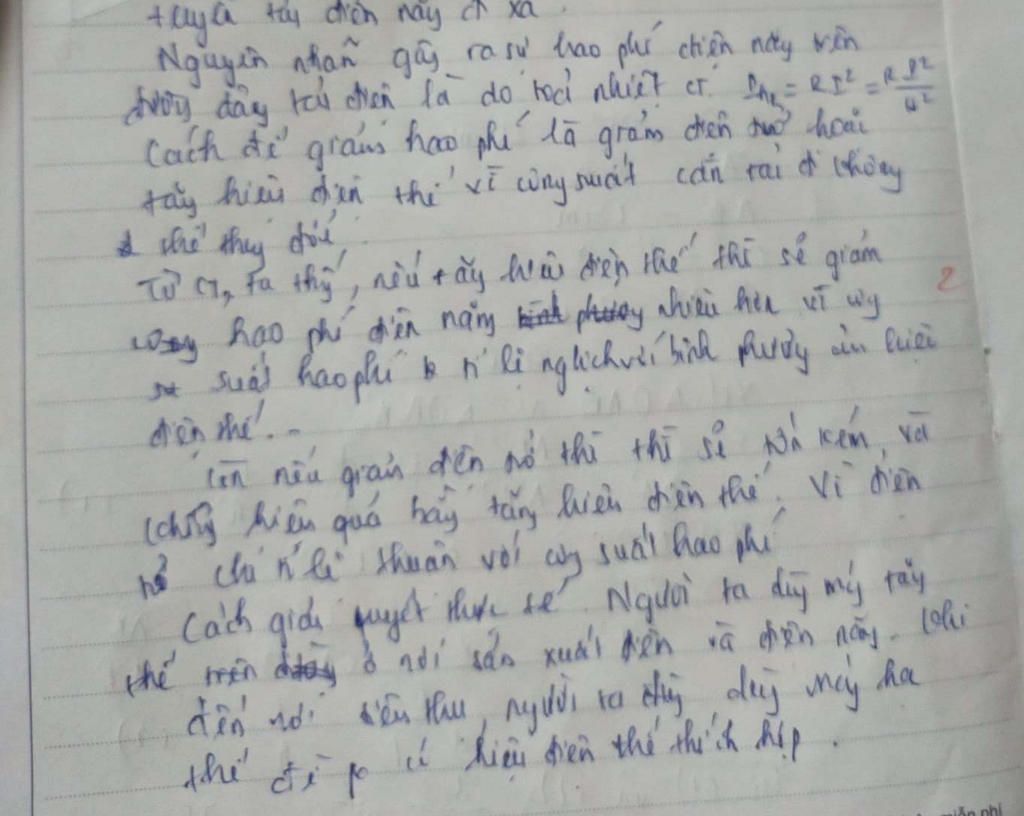 truyền tải điện này đi xa.
Nguyên nhân gây ra sự hao phí điện này trên
đường dây tải điện là do toả nhiệt cr. Phf = RI² = R P²/U²
Cách để giảm hao phí là giảm điện trở hoặc
tăng hiệu điện thế vì công suất cần tải đi không
thể thay đổi.
Từ CT, ta thấy, nếu tăng hiệu điện thế thì sẽ giảm
hao phí điện năng nhiều hơn vì công
suất hao phí tỉ lệ nghịch với bình phương của hiệu
điện thế.
Còn nếu giảm điện trở thì thì sẽ tốn kém, và
không hiệu quả bằng tăng hiệu điện thế. Vì điện
trở chỉ tỉ lệ thuận với công suất hao phí
Cách giải quyết thực tế. Người ta dùng máy tăng
thế trên ở nơi sản xuất điện và điện năng. Khi
đến nơi tiêu thụ, người ta dùng dùng máy hạ
thế để có hiệu điện thế thích hợp.
2